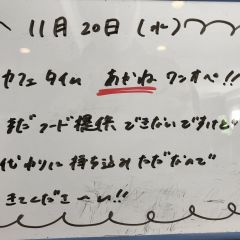 11月20日(水)
カフェタイム あかね ワンオペ!!
まだフード提供できないですけど
代わりに持ち込みタダなので
きてくださーい!!